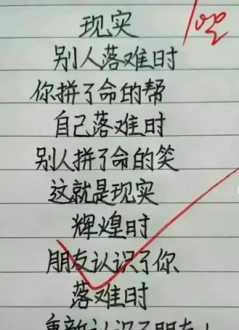 现实
别人落难时
你拼了命的帮
自己落难时
别人拼了命的笑
这就是现实
辉煌时
朋友认识了你
落难时